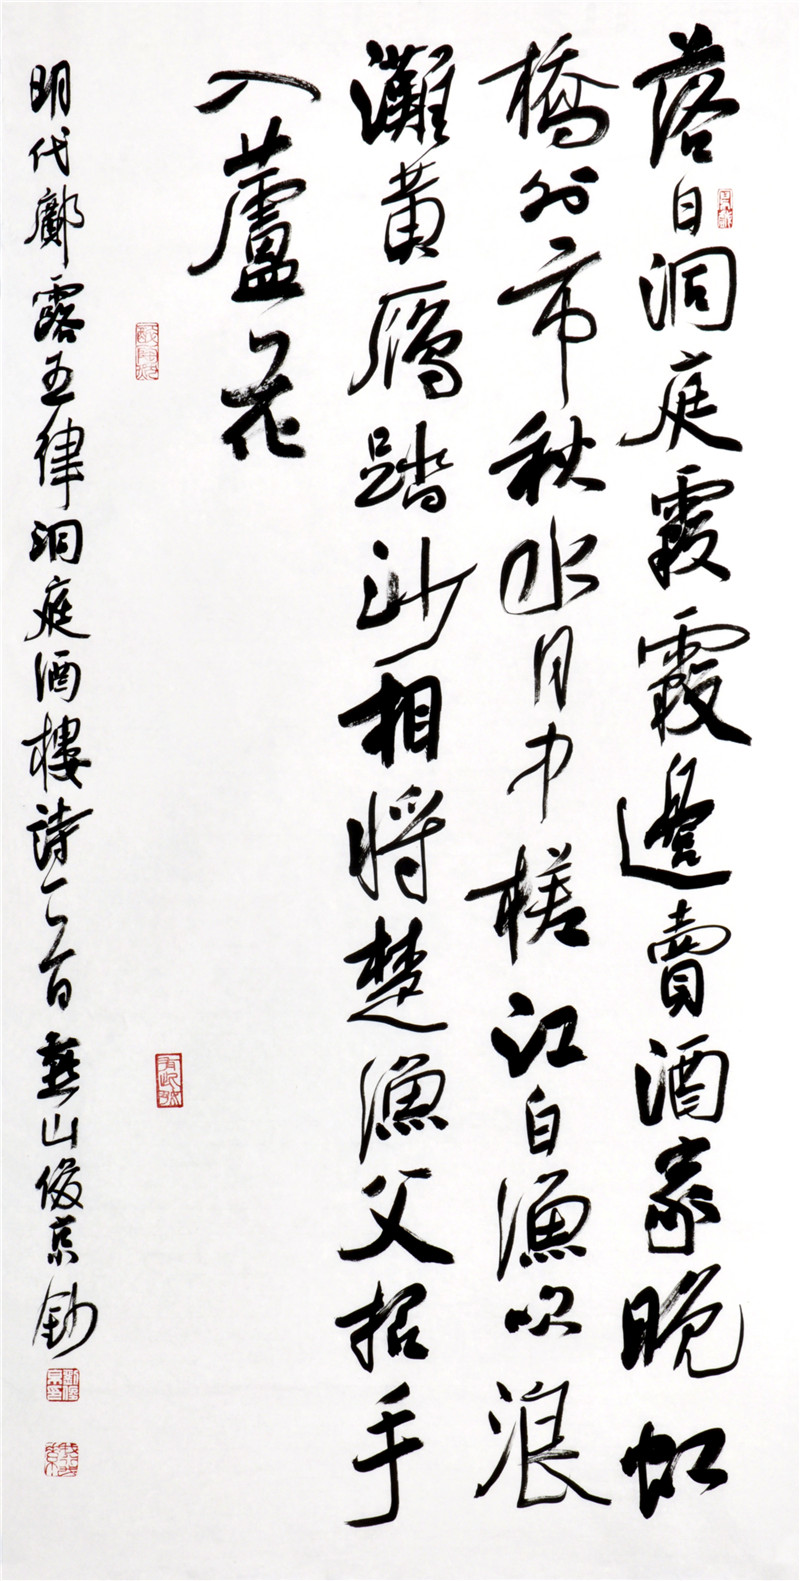 落日洞庭霞霞邊賣酒家晚虹
橋外市秋水月中槎江白漁吹浪
灘黃鴈踏沙相将楚漁父招手
入蘆花
明代鄺露五律洞庭酒樓詩一首燕山俊京鈔